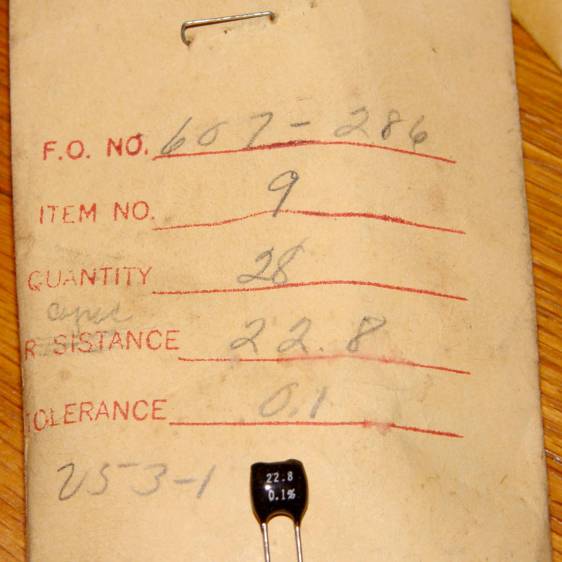 F.O. NO. 607-286
ITEM NO. 9
QUANTITY 28
RESISTANCE 22.8
TOLERANCE 0.1
V53-1
22.8
0.1%